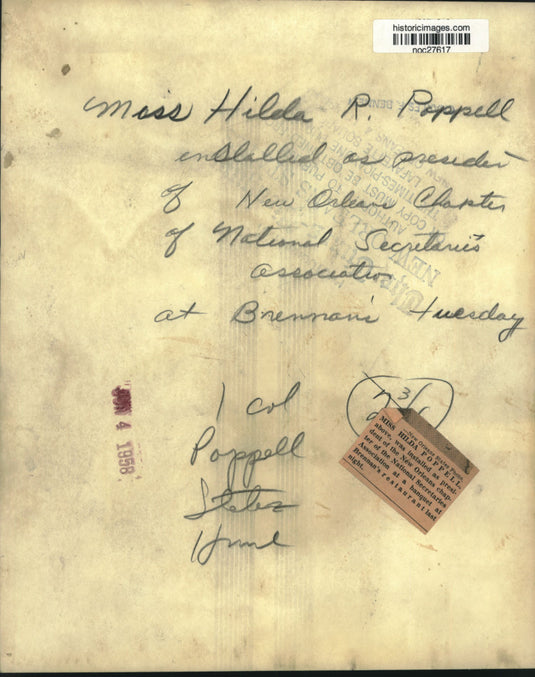 historicimages.com
noc27617
Miss Hilda R. Poppell
installed as president
of New Orleans Chapter
of National Secretaries
Association
at Brennan's Tuesday
1 col
Poppell
States
JUN 4 1958
—New Orleans States Photo.
MISS HILDA POPPELL,
above, was installed as presi-
dent of the New Orleans chap-
ter of the National Secretaries
Association at a banquet at
Brennan's restaurant last
night.